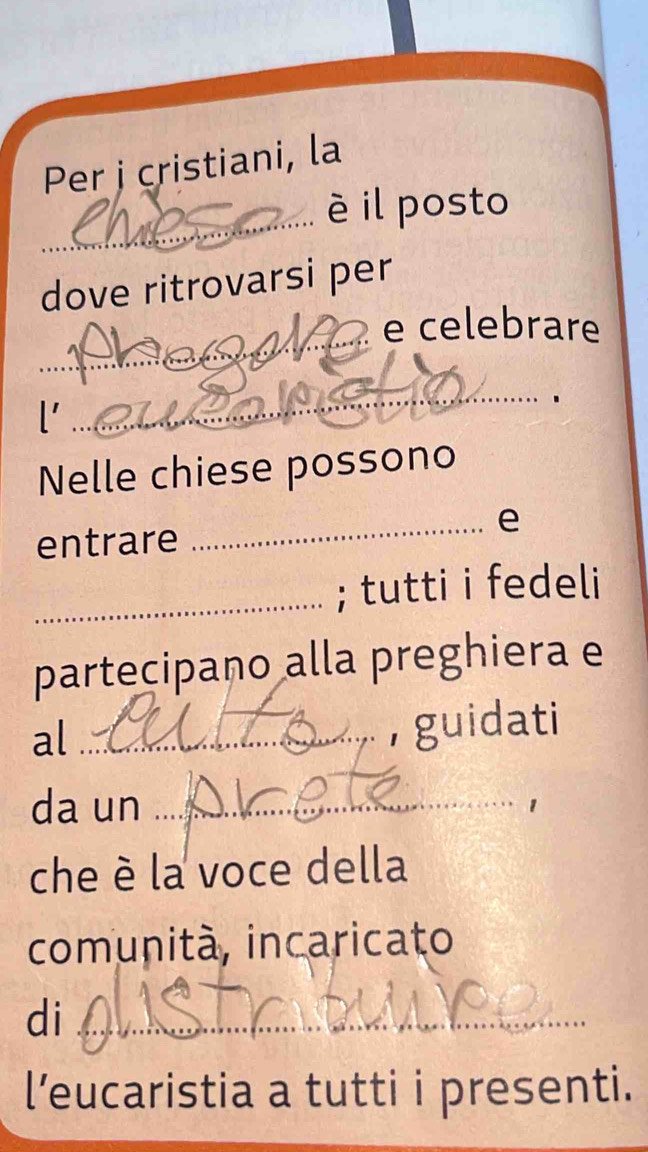 Per i cristiani, la
chiesa è il posto
dove ritrovarsi per
pregare e celebrare
l' eucaristia .
Nelle chiese possono
entrare ........ e
........ ; tutti i fedeli
partecipano alla preghiera e
al culto , guidati
da un prete ,
che è la voce della
comunità, incaricato
di distribuire
l'eucaristia a tutti i presenti.